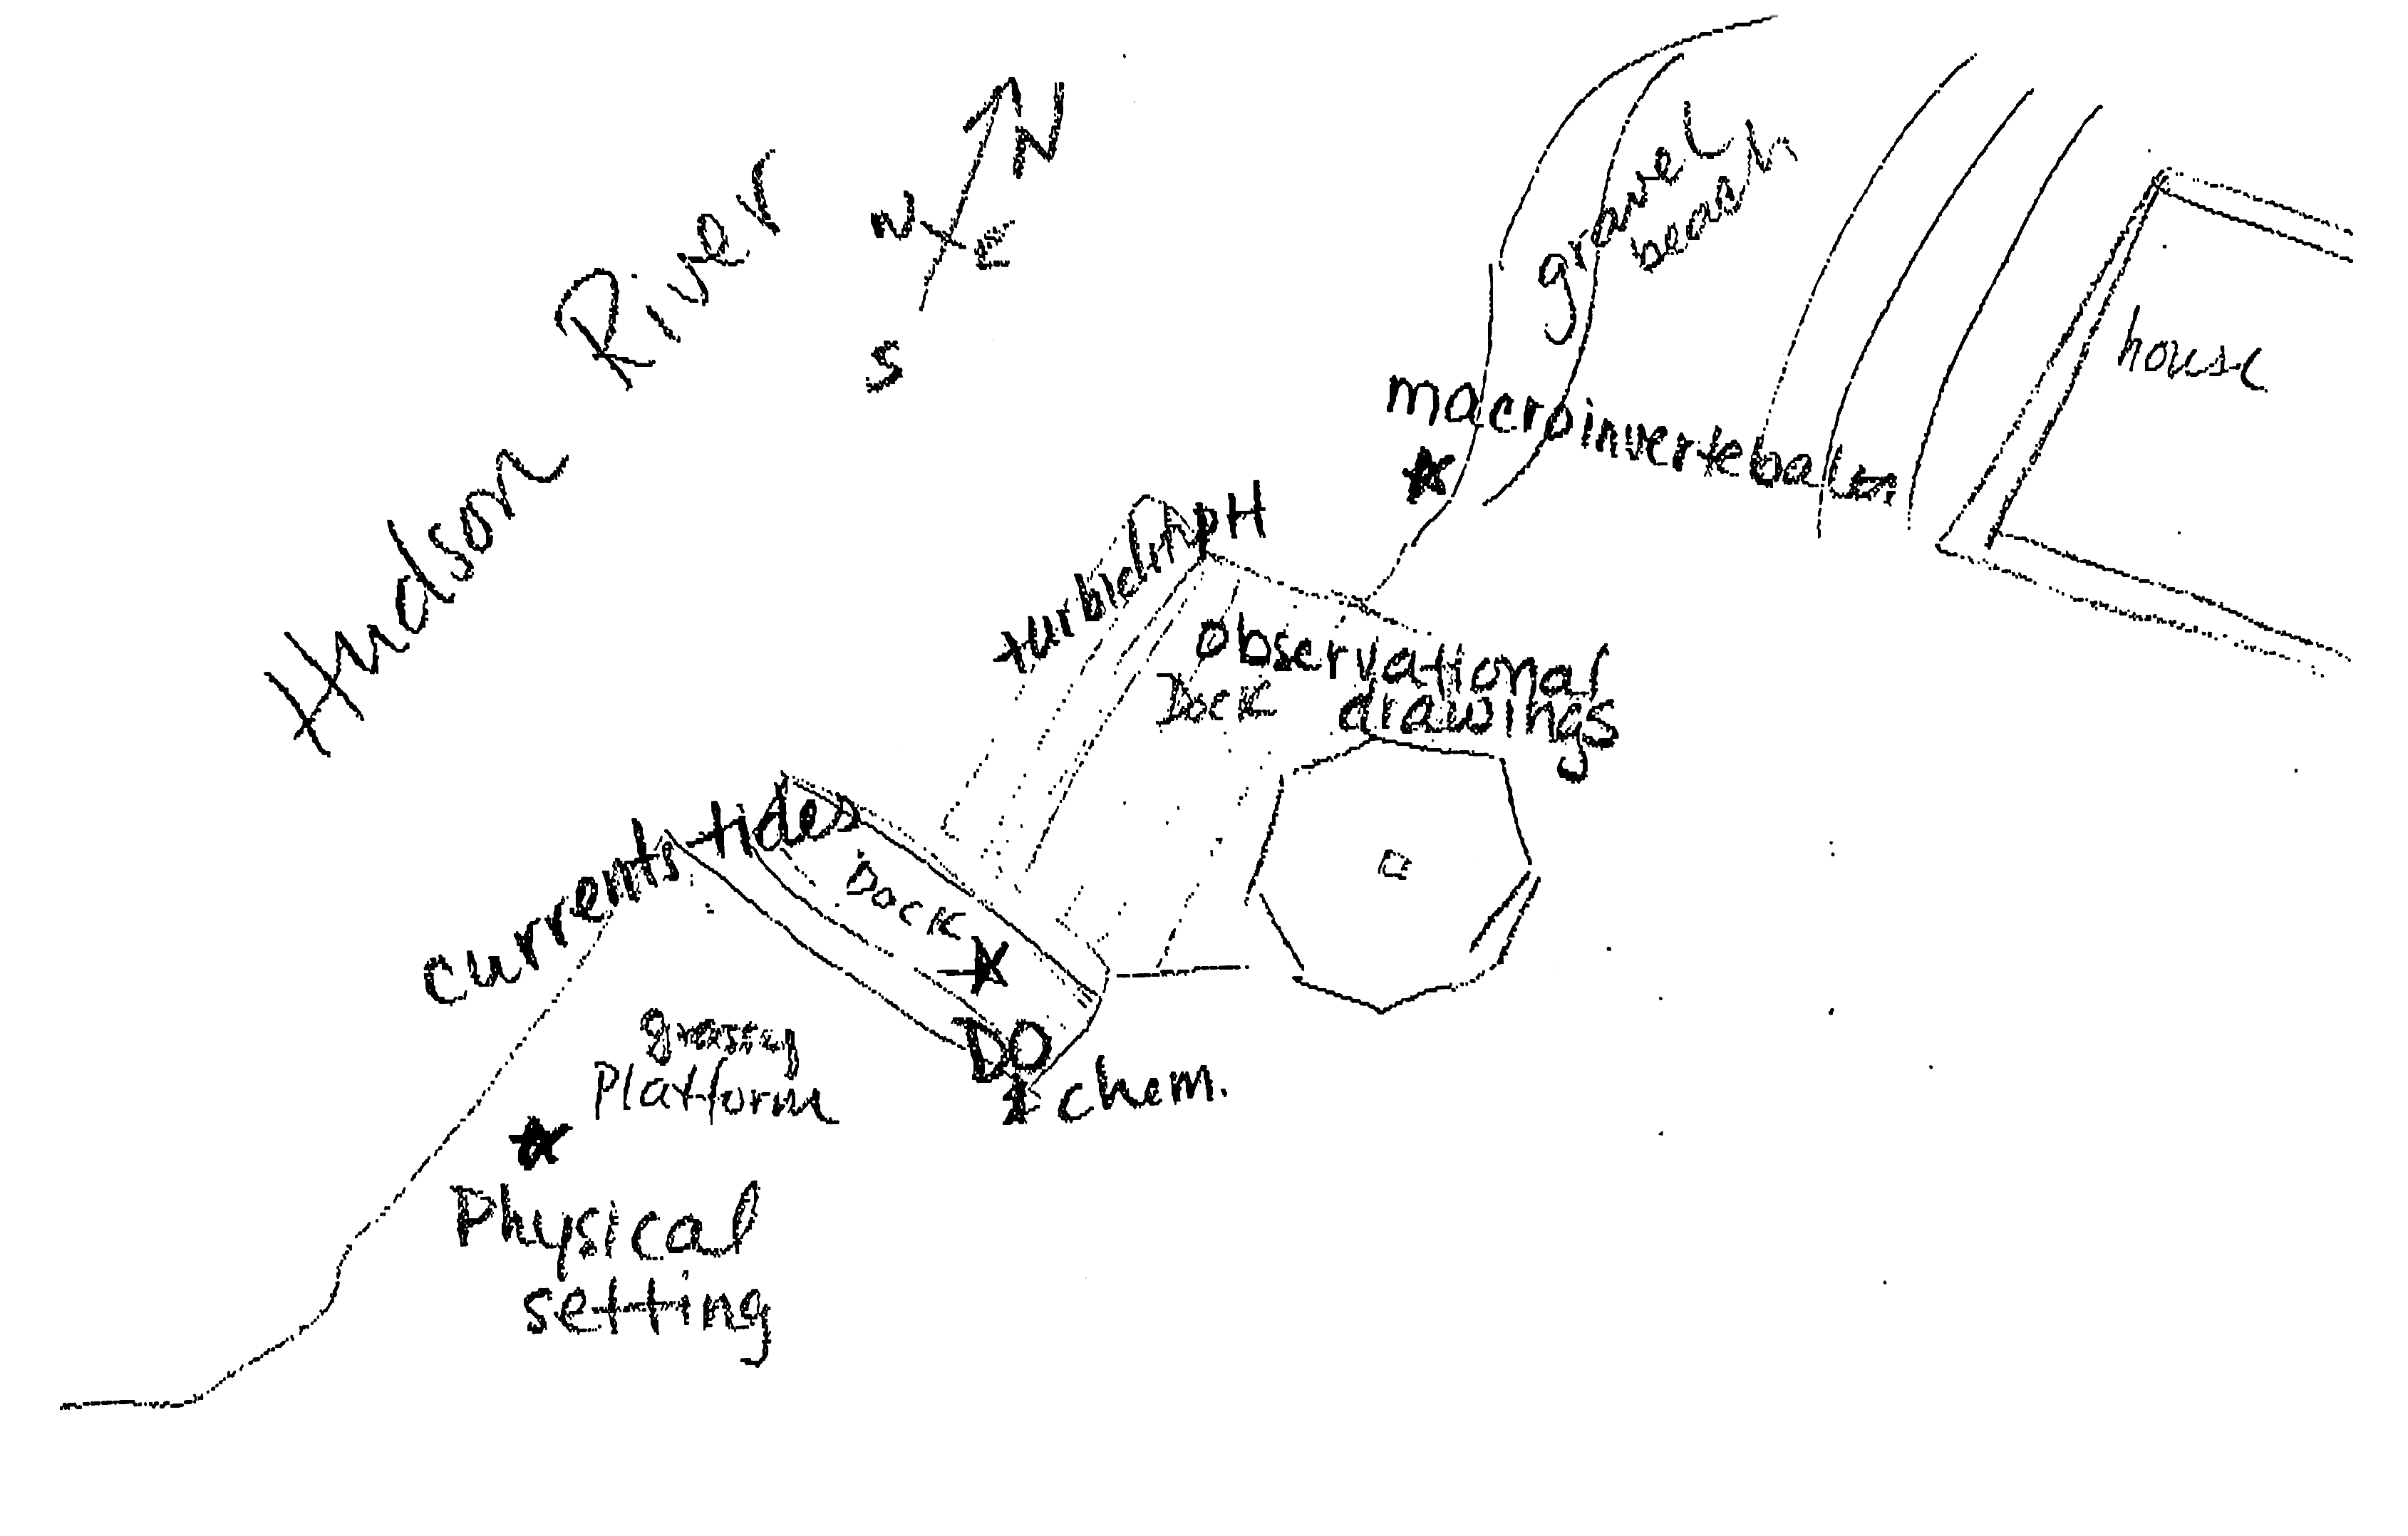 Hudson River
N
W
E
S
gravel
beach
house
macroinvertebates
turbidity
pH
observational
drawings
Dock
currents tides
Dock
DO
chem.
grassy
Platform
Physical
setting